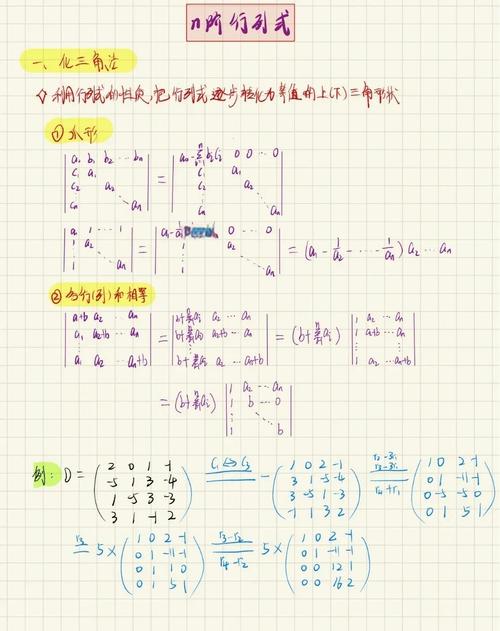 n阶行列式
一、化三角法
利用行列式的性质,把行列式逐步转化为等值的上(下)三角形状
① 爪形
a₀ b₁ b₂ ⋯ bₙ
c₁ a₁
c₂ a₂
cₙ aₙ
=
0 0 ⋯ 0
c₁ a₁
c₂ a₂
cₙ aₙ
a₁ 1 ⋯ 1
1 a₂
1 aₙ
=
0 ⋯ 0
a₂
1 aₙ
= (a₁ - 1/a₂ - ⋯ - 1/aₙ) a₂ ⋯ aₙ
② 各行(列)和相等
a₁+b a₂ ⋯ aₙ
a₁ a₂+b ⋯ aₙ
a₁ a₂ ⋯ aₙ+b
=
b+Σaᵢ a₂ ⋯ aₙ
b+Σaᵢ a₂+b ⋯ aₙ
b+Σaᵢ a₂ ⋯ aₙ+b
= (b+Σaᵢ)
1 a₂ ⋯ aₙ
1 a₂+b ⋯ aₙ
1 a₂ ⋯ aₙ+b
= (b+Σaᵢ)
1 a₂ ⋯ aₙ
1 b ⋯ 0
1 b
例: D =
2 0 1 -1
-5 1 3 -4
1 -5 3 -3
3 1 -1 2
c₁⇔c₃
-
1 0 2 -1
3 1 -5 -4
3 -5 1 -3
-1 1 3 2
r₂-3r₁
r₃-3r₁
r₄+r₁
1 0 2 -1
0 1 -11 -1
0 -5 -5 0
0 1 5 1
= 5×
1 0 2 -1
0 1 -11 -1
0 1 1 0
0 1 5 1
r₃-r₂
r₄-r₂
5×
1 0 2 -1
0 1 -11 -1
0 0 12 1
0 0 16 2